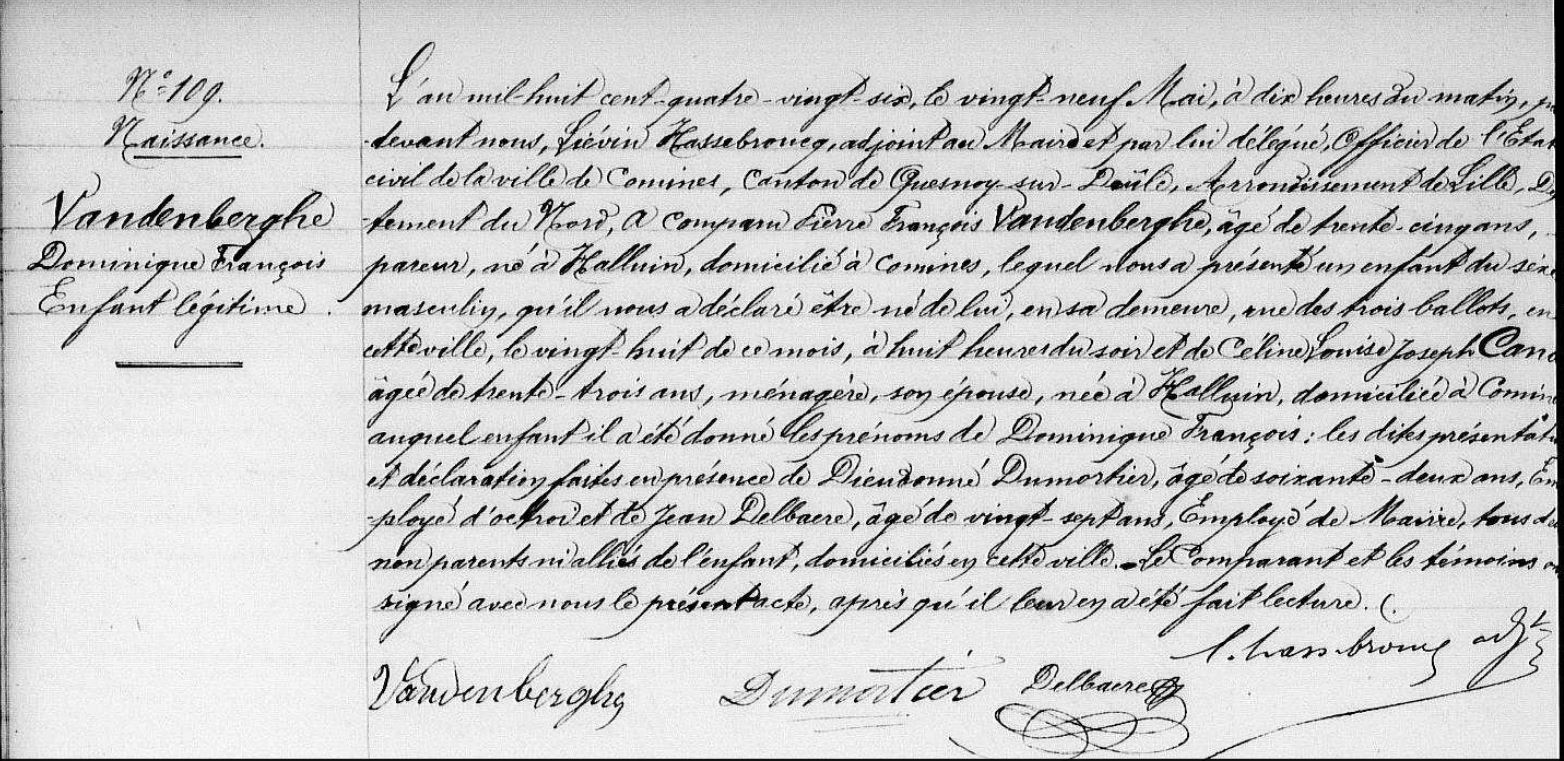 N° 109.
Naissance.
Vandenberghe
Dominique François
Enfant légitime.
L'an mil-huit cent-quatre-vingt-six, le vingt-neuf Mai, à dix heures du matin,
devant nous, Liévin Hassebroucq, adjoint au Maire et par lui délégué, Officier de l'Etat
civil de la ville de Comines, Canton de Quesnoy-sur-Deûle, Arrondissement de Lille,
-tement du Nord, a comparu Pierre François Vandenberghe, âgé de trente-cinq ans,
pareur, né à Halluin, domicilié à Comines, lequel nous a présenté un enfant du sexe
masculin, qu'il nous a déclaré être né de lui, en sa demeure, rue des trois ballots, en
cette ville, le vingt-huit de ce mois, à huit heures du soir et de Céline Louise Joseph
âgée de trente-trois ans, ménagère, son épouse, née à Halluin, domiciliée à
auquel enfant il a été donné les prénoms de Dominique François: les dites
et déclaration faites en présence de Dieudonné Dumortier, âgé de soixante-deux ans, Em
-ployé d'octroi et de Jean Delbaere, âgé de vingt-sept ans, Employé de Mairie, tous
non parents ni alliés de l'enfant, domiciliés en cette ville. - Le Comparant et les témoins
signé avec nous le présent acte, après qu'il leur en a été fait lecture. (.
L. hassebroucq adjt
Vandenberghe Dumortier Delbaere